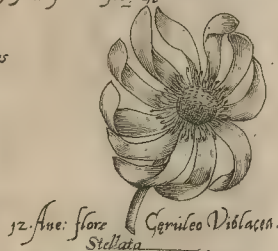 12. Ane: flore Cęruleo Violacea.
Stellata